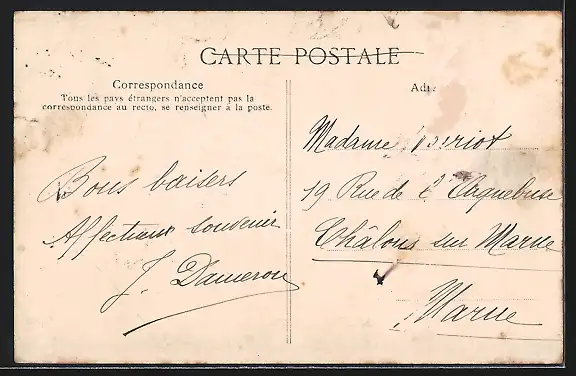 CARTE POSTALE
Correspondance
Tous les pays étrangers n'acceptent pas la
correspondance au recto, se renseigner à la poste.
Bons baisers
Affectueux souvenir
J. Dameron
Madame
19 Rue de l'Arquebuse
Châlons sur Marne
Marne